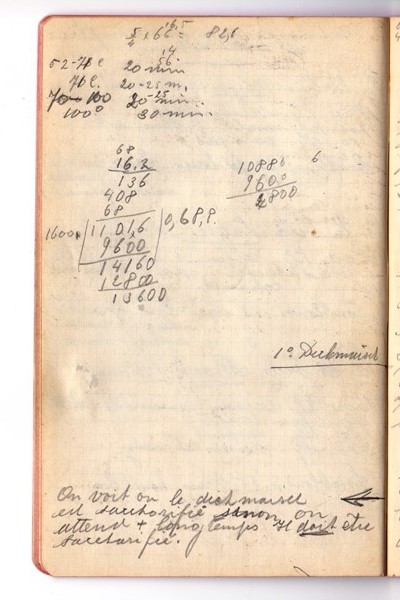 5/4 x 66 = 82,5
16,5
52-71c 20 min
71c. 20-25 m.
70-100 20-25 min.
100° 30 min.
68
16,2
136
408
68
1600 11016 0,68,8
9600
14160
12800
13600
10880 6
9600
2800
1° Dickmaisch
On voit où le dickmaisch
est saccharifié sinon on
attend + longtemps Il doit être
saccharifié.